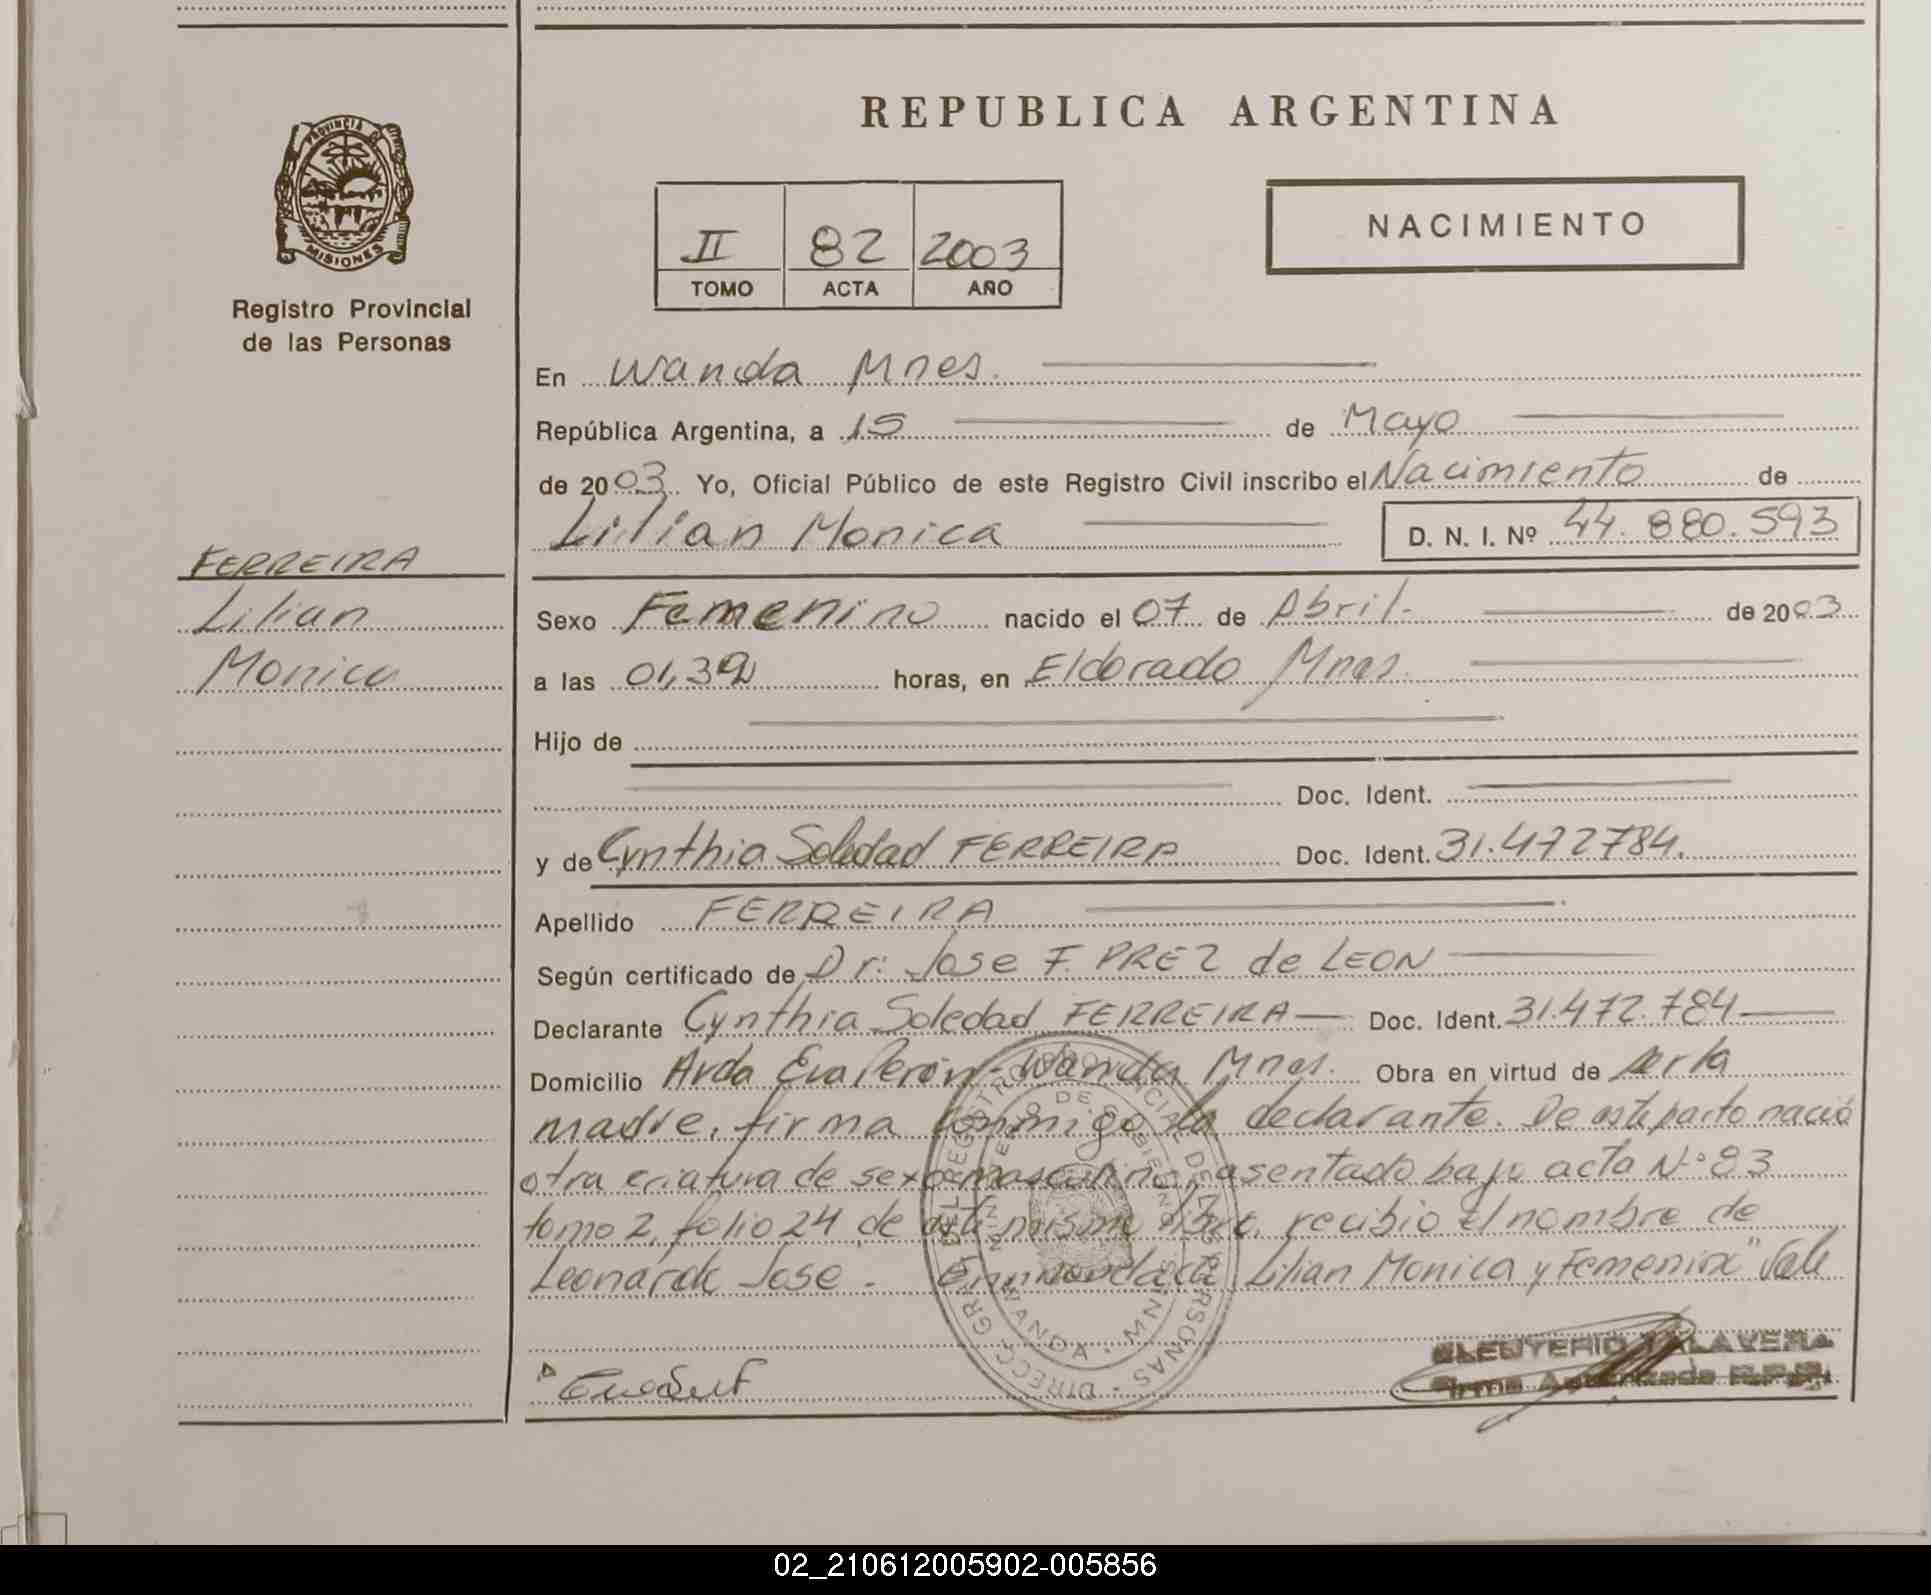 REPUBLICA ARGENTINA
PROVINCIA DE
MISIONES
Registro Provincial
de las Personas
II 82 2003
TOMO ACTA AÑO
NACIMIENTO
En Wanda Mnes.
República Argentina, a 15 de Mayo
de 2003 Yo, Oficial Público de este Registro Civil inscribo el Nacimiento de
Lilian Monica D. N. I. Nº 44.880.593
FERREIRA
Lilian
Monica
Sexo Femenino nacido el 07 de Abril. de 2003
a las 01,39 horas, en Eldorado Mnes.
Hijo de
Doc. Ident.
y de Cynthia Soledad FERREIRA Doc. Ident. 31.472784.
Apellido FERREIRA
Según certificado de Dr: Jose F. PREZ de LEON
Declarante Cynthia Soledad FERREIRA Doc. Ident. 31.472.784
Domicilio Avda Eva Peron - Wanda Mnes. Obra en virtud de ser la
madre, firma conmigo la declarante. De este parto nació
otra criatura de sexo masculino, asentado bajo acta N.º 83
tomo 2, folio 24 de este mismo libro, recibio el nombre de
Leonardo Jose. Enmendado Lilian Monica y Femenino" Vale
ELEUTERIO TALAVERA
Firma Autorizada R.P.P.
DIRECC. GRAL. DEL REGISTRO PROVINCIAL DE LAS PERSONAS
MINISTERIO DE GOBIERNO
WANDA
02_210612005902-005856